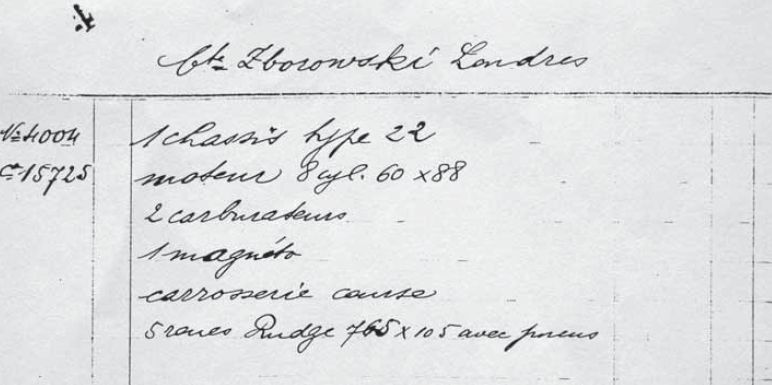 Cte Zborowski Londres
No 4004
1 chassis type 22
Ct 15725
moteur 8 cyl. 60 x 88
2 carburateurs
1 magnéto
carrosserie course
5 roues Rudge 765 x 105 avec pneus